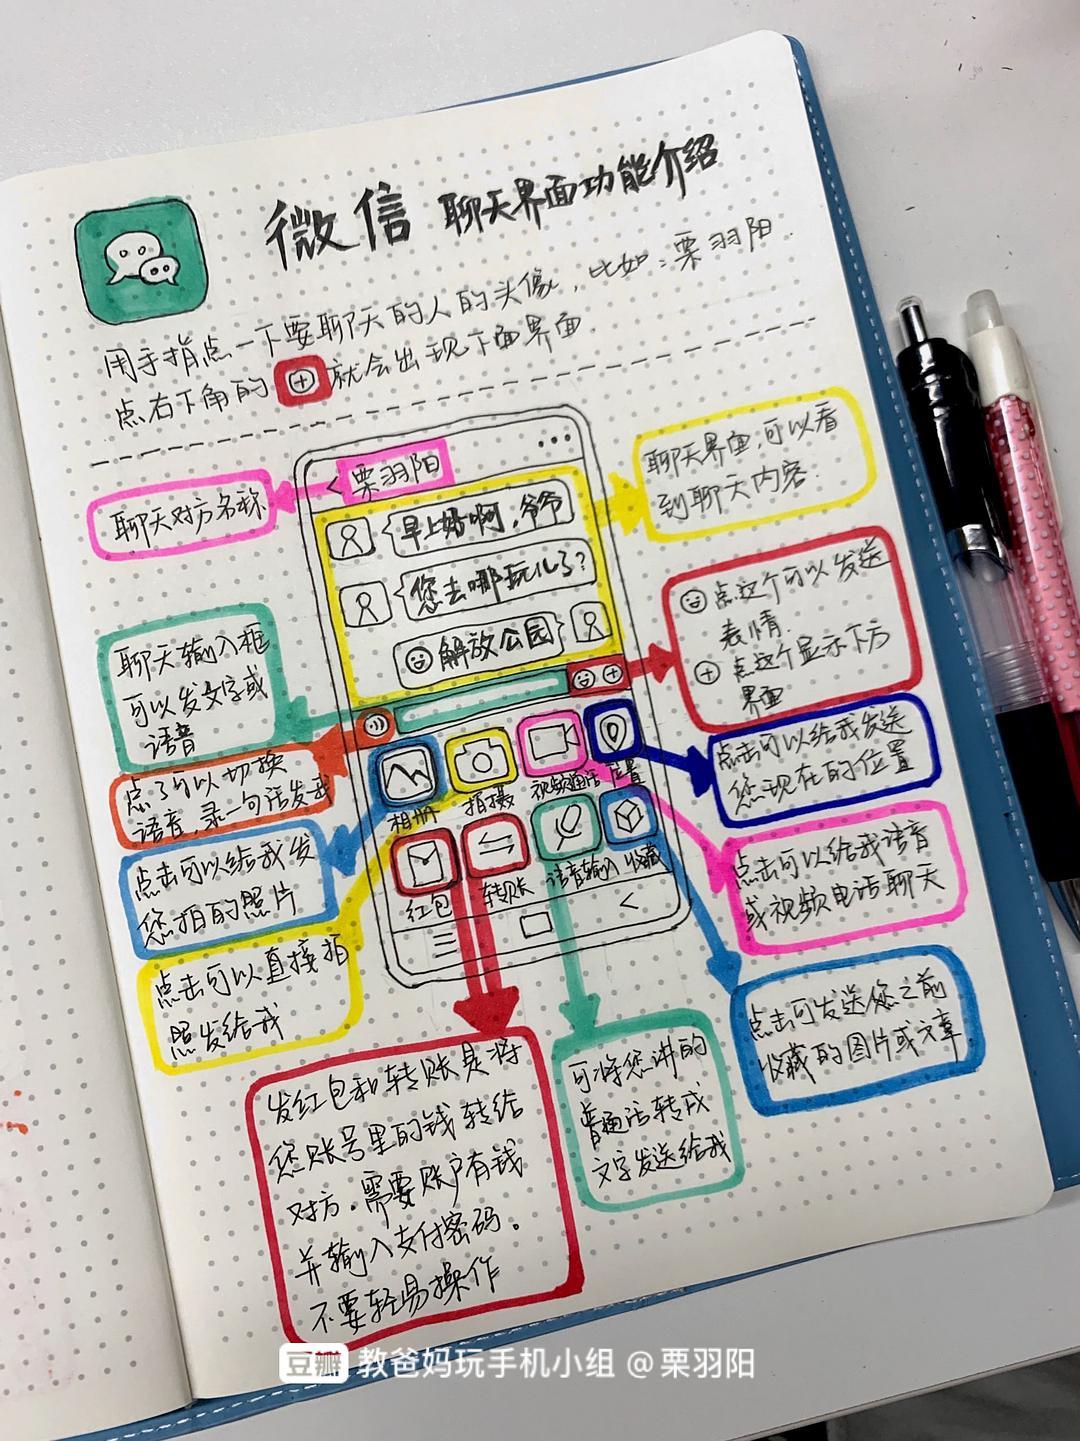 微信 聊天界面功能介绍
用手指点一下要聊天的人的头像，比如：栗羽阳.
点右下角的 ⊕ 就会出现下面界面.
聊天对方名称
< 栗羽阳 ...
早上好啊，爷爷
您去哪玩儿了？
解放公园
聊天界面，可以看
到聊天内容.
聊天输入框
可以发文字或
语音
点这个可以发送
表情.
⊕ 点这个显示下方
界面
点了可以切换
语音，录一句话发我
相册
拍摄
视频通话
位置
红包
转账
语音输入
收藏
点击可以给我发送
您现在的位置
点击可以给我发
您拍的照片
点击可以给我语音
或视频电话聊天
点击可以直接拍
照发给我
点击可发送您之前
收藏的图片或文章
发红包和转账是将
您账号里的钱转给
对方.需要账户有钱
并输入支付密码。
不要轻易操作
可将您讲的
普通话转成
文字发送给我
豆瓣 教爸妈玩手机小组 @栗羽阳